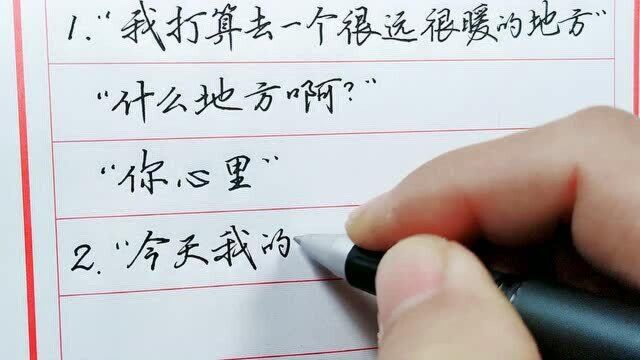 1.“我打算去一个很远很暖的地方”
“什么地方啊?”
“你心里”
2.“今天我的